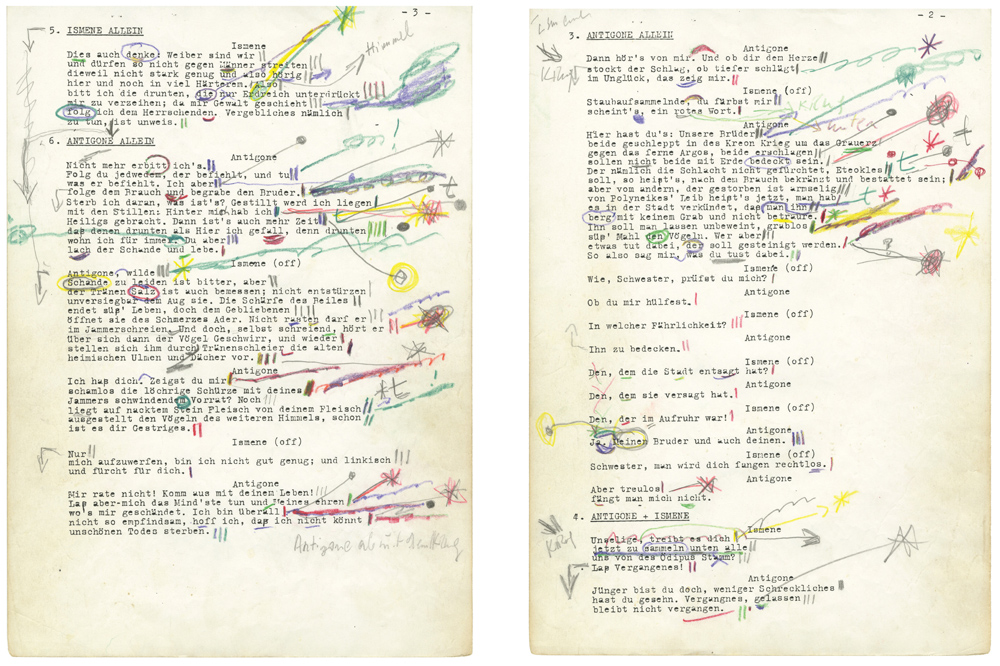 - 3 -
5. ISMENE ALLEIN
Ismene
Dies auch denke: Weiber sind wir
und dürfen so nicht gegen Männer streiten
dieweil nicht stark genug und also hörig
hier und noch in viel Härterem. Also
bitt ich die drunten, die nur Erdreich unterdrückt
mir zu verzeihen; da mir Gewalt geschieht
folg ich dem Herrschenden. Vergebliches nämlich
zu tun, ist unweis.
Himmel
6. ANTIGONE ALLEIN
Antigone
Nicht mehr erbitt ich's.
Folg du jedwedem, der befiehlt, und tu
was er befiehlt. Ich aber
folge dem Brauch und begrabe den Bruder.
Sterb ich daran, was ist's? Gestillt werd ich liegen
mit den Stillen. Hinter mir hab ich
Heiligs gebracht. Dann ist's auch mehr Zeit
das denen drunten als Hier ich gefall, denn drunten
wohn ich für immer. Du aber
lach der Schande und lebe.
Ismene (off)
Antigone, wilde
Schande zu leiden ist bitter, aber
der Tränen Salz ist auch bemessen; nicht entstürzen
unversiegbar dem Aug sie. Die Schärfe des Beiles
endet süß' Leben, doch dem Gebliebenen
öffnet sie des Schmerzes Ader. Nicht rasten darf er
im Jammerschreien. Und doch, selbst schreiend, hört er
über sich dann der Vögel Geschwirr, und wieder
stellen sich ihm durch Tränenschleier die alten
heimischen Ulmen und Dächer vor.
Antigone
Ich haß dich. Zeigst du mir
schamlos die löchrige Schürze mit deines
Jammers schwindendem Vorrat? Noch
liegt auf nacktem Stein Fleisch von deinem Fleisch
ausgestellt den Vögeln des weiteren Himmels, schon
ist es dir Gestriges.
Ismene (off)
Nur
mich aufzuwerfen, bin ich nicht gut genug; und linkisch
und fürcht für dich.
Antigone
Mir rate nicht! Komm aus mit deinem Leben!
Laß aber mich das Mind'ste tun und Meines ehren
wo's mir geschändet. Ich bin überall
nicht so empfindsam, hoff ich, daß ich nicht könnt
unschönen Todes sterben.
Antigone ab mit dem Krug
- 2 -
Ismene
3. ANTIGONE ALLEIN
Antigone
Dann hör's von mir. Und ob dir dem Herze
stockt der Schlag, ob tiefer schlägt
im Unglück, das zeig mir.
Krug
Ismene (off)
Staubaufsammelnde, du färbst mir
scheint's, ein rotes Wort.
Antigone
Hier hast du's: Unsere Brüder
beide geschleppt in des Kreon Krieg um das Grauerz
gegen das ferne Argos, beide erschlagen
sollen nicht beide mit Erde bedeckt sein.
Der nämlich die Schlacht nicht gefürchtet, Etokles
soll, so heißt's, nach dem Brauch bekränzt und bestattet sein;
aber vom andern, der gestorben ist armselig
von Polyneikes' Leib heißt's jetzt, man hab
es in der Stadt verkündet, daß man ihn
berg mit keinem Grab und nicht betraure.
Ihn soll man lassen unbeweint, grablos
süß' Mahl den Vögeln. Wer aber
etwas tut dabei, der soll gesteinigt werden.
So also sag mir, was du tust dabei.
Ismene (off)
Wie, Schwester, prüfst du mich?
Antigone
Ob du mir hülfest.
Ismene (off)
In welcher Fährlichkeit?
Antigone
Ihn zu bedecken.
Ismene (off)
Den, dem die Stadt entsagt hat?
Antigone
Den, dem sie versagt hat.
Ismene (off)
Den, der im Aufruhr war!
Antigone
Ja. Meinen Bruder und auch deinen.
Ismene (off)
Schwester, man wird dich fangen rechtlos.
Antigone
Aber treulos
fängt man mich nicht.
4. ANTIGONE + ISMENE
Ismene
Unselige, treibt es dich
jetzt zu sammeln unten alle
uns von des Ödipus Stamm?
Laß Vergangenes!
Antigone
Jünger bist du doch, weniger Schreckliches
hast du gesehn. Vergangnes, gelassen
bleibt nicht vergangen.